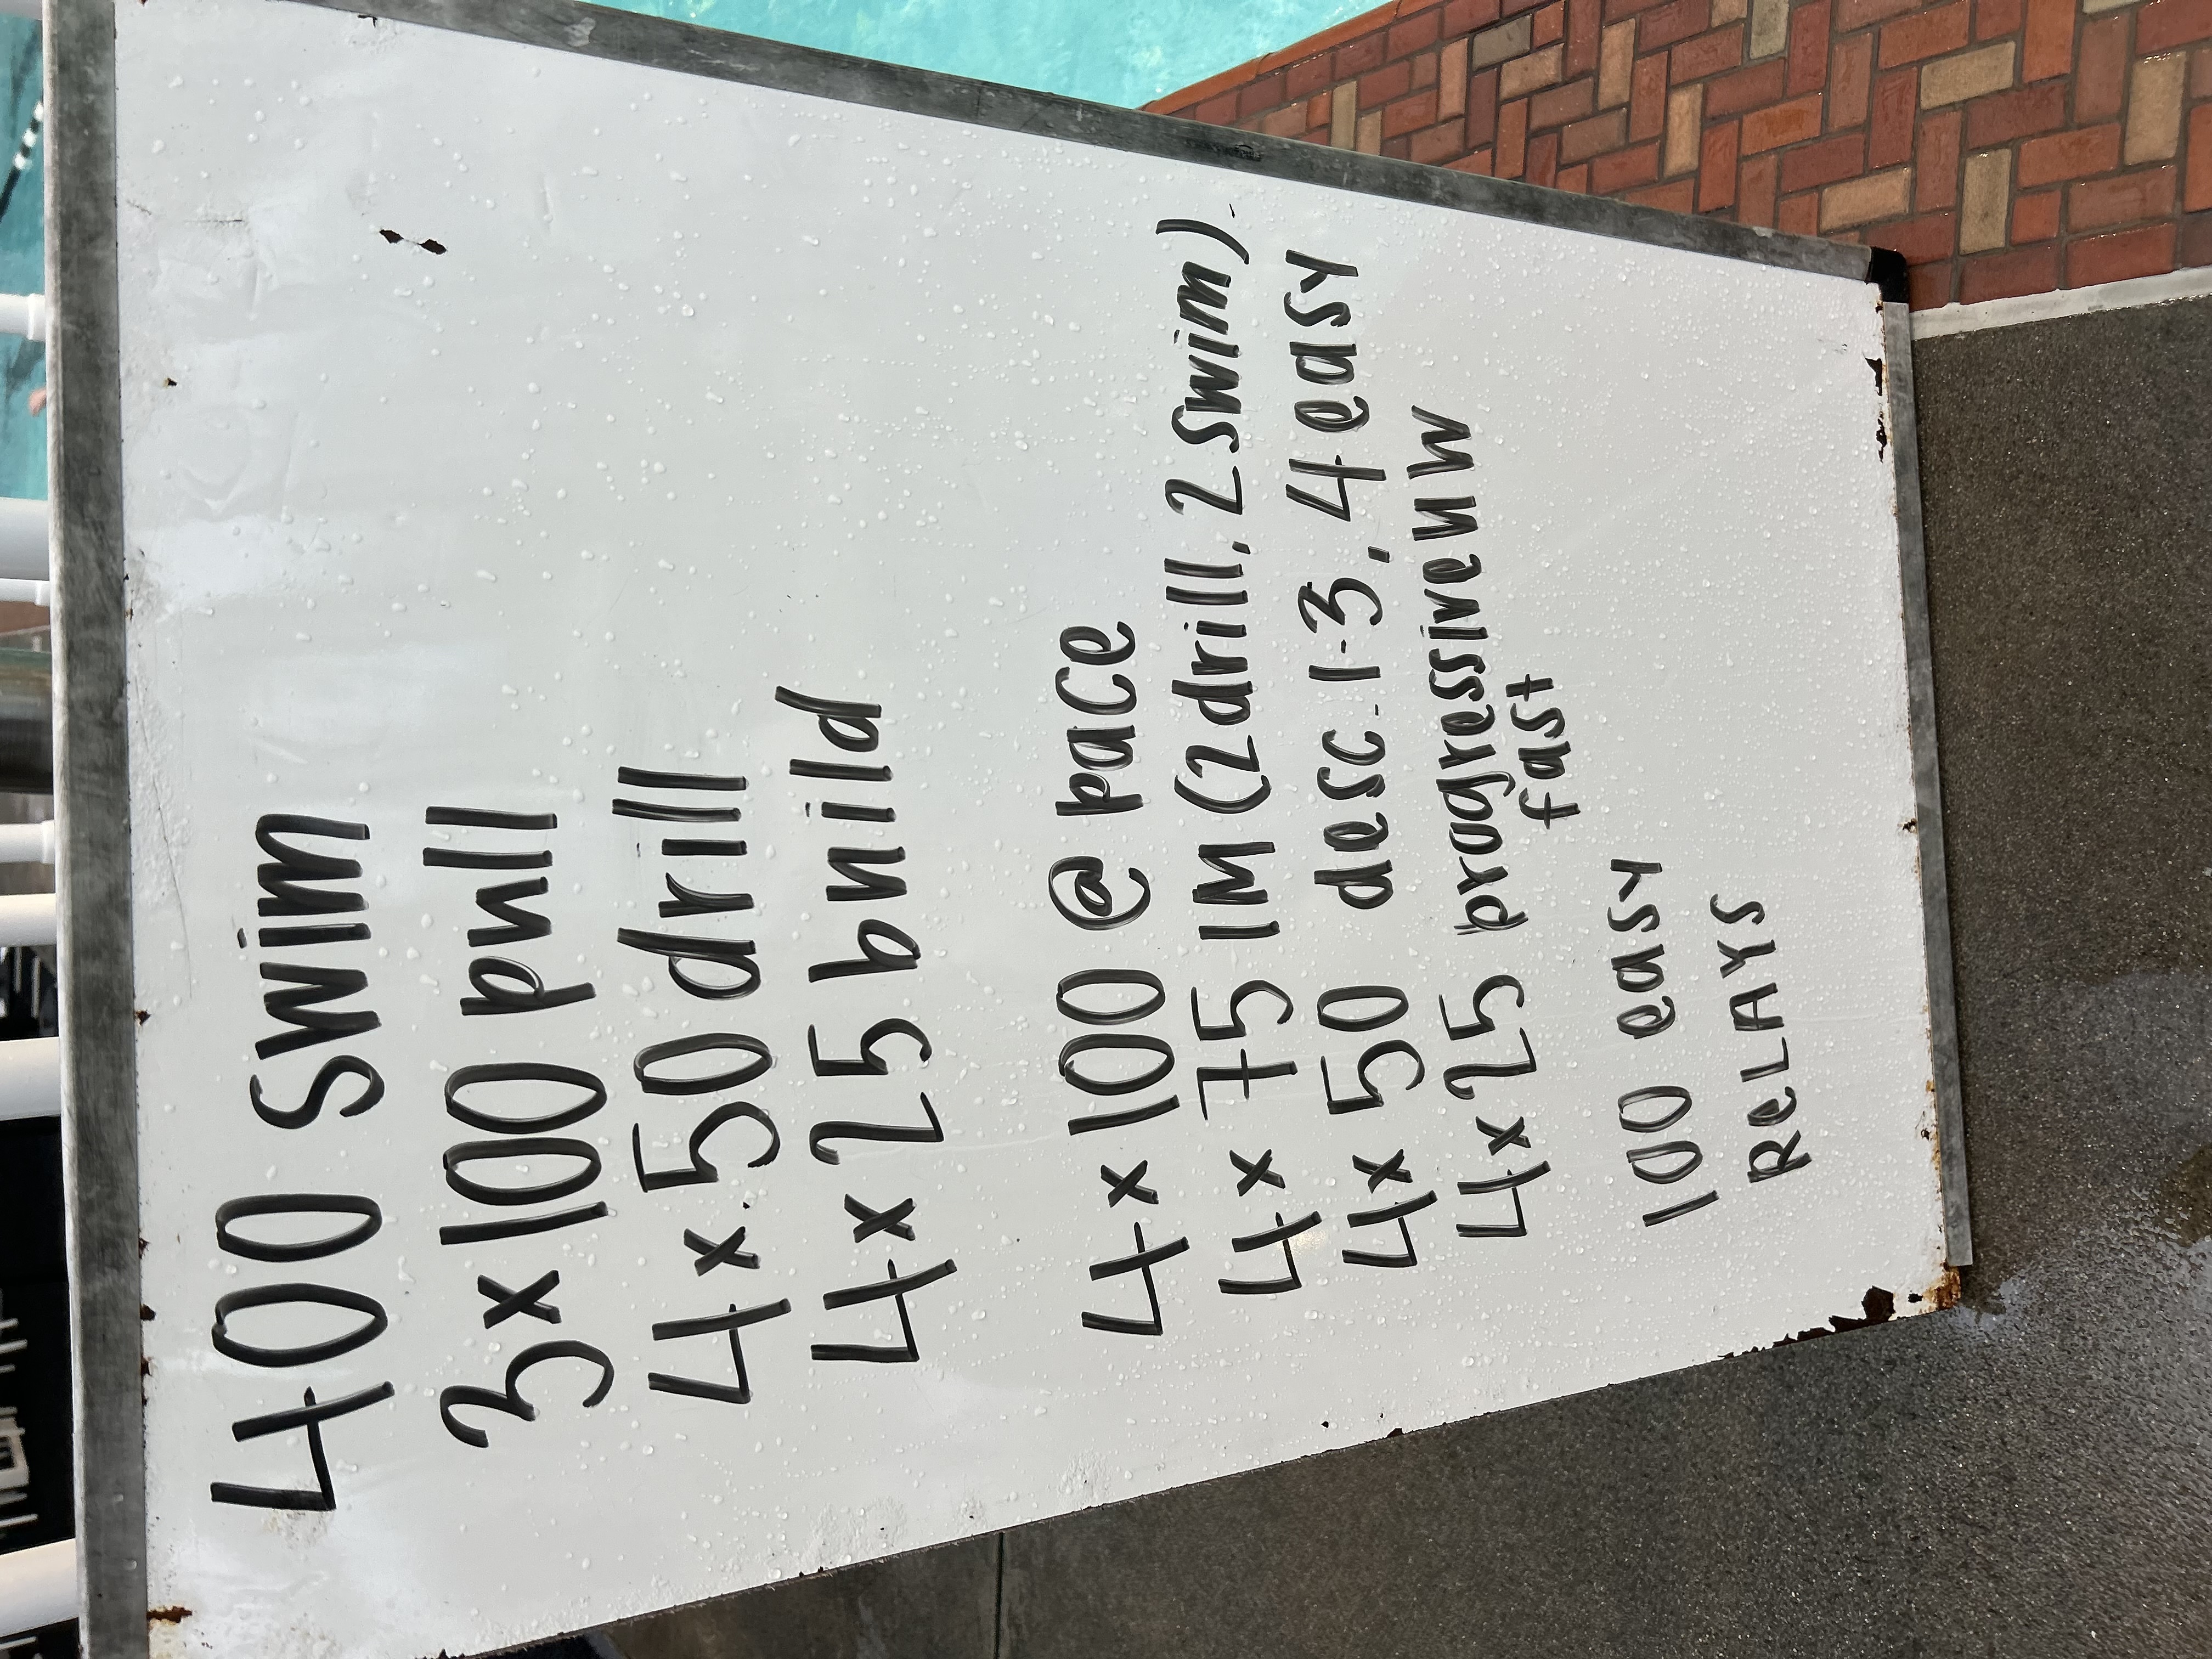 400 Swim
3x100 pull
4x50 drill
4x25 build
4x100 @ pace
4x75 IM (2drill, 2swim)
4x50 desc. 1-3, 4 easy
4x25 progressively
fast
100 easy
ReLAYS